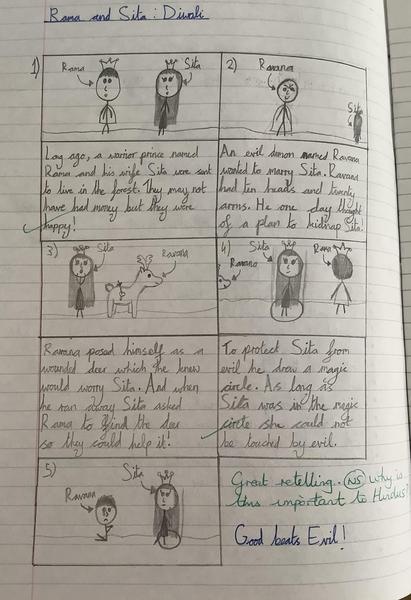 Rama and Sita : Diwali
1)
Rama
Sita
2)
Ravana
Sita
Long ago, a warrior prince named
Rama and his wife Sita were sent
to live in the forest. They may not
have had money but they were
happy!
An evil demon named Ravana
wanted to marry Sita. Ravana
had ten heads and twenty
arms. He one day thought
of a plan to kidnap Sita!
3)
Sita
Ravana
4)
Sita
Ravana
Rama
Ravana posed himself as a
wounded deer which he knew
would worry Sita. And when
he ran away Sita asked
Rama to find the deer
so they could help it!
To protect Sita from
evil he drew a magic
circle. As long as
Sita was in the magic
circle she could not
be touched by evil.
5)
Ravana
Sita
Great retelling. NS why is
this important to Hindus?
Good beats Evil!